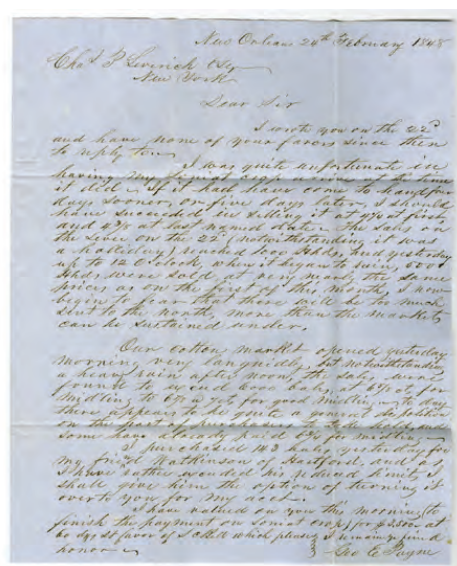 New Orleans 24th February 1848
Chas P Leverich Esq
New York
Dear Sir
I wrote you on the 22d
and have none of your favors since then
to reply to.
I was quite unfortunate in
having my arrive at the time
it did. If it had have come to hand four
days sooner, or five days later, I should
have succeeded in selling it at first
and at last named date. The sales on
the Levee on the 22d, notwithstanding it was
a holiday, reached 1000 Hhds, and yesterday
up to 12 o'clock, when it began to rain,
Hhds were sold at very nearly the same
prices as on the first of this month. I now
begin to fear that there will be too much
sent to the north, more than the markets
can be sustained under.
Our cotton market opened yesterday
morning very languidly, but notwithstanding
a heavy rain after noon, the sales were
found to exceed 6000 bales, at for
midling to for good midling. To day
there appears to be quite a general disposition
on the part of purchasers to take hold, and
some have already paid for midling
I purchased 143 bales yesterday for
my friend Watkinson of Hartford, and as
I have rather exceeded his reduced limits, I
shall give him the option of turning it
over to you for my acct.
I have valued on you this morning to
finish the payment on crop for $2500 at
60 dys favor of which please
honor
I remain yr friend
Geo E Payne